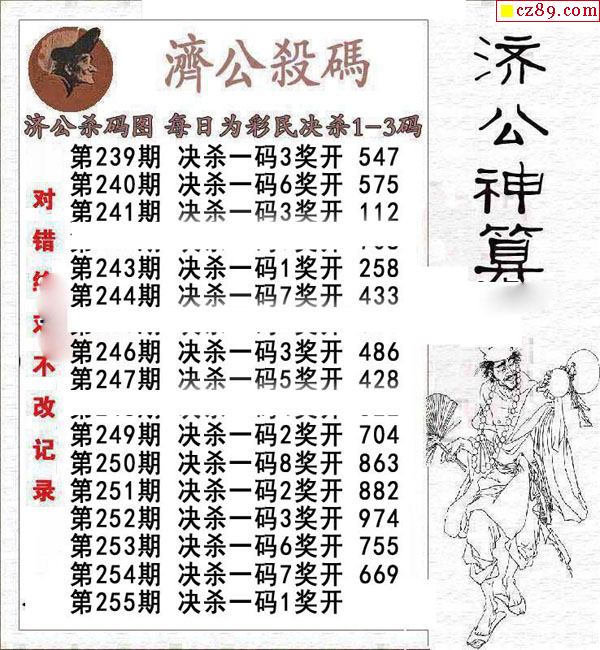 cz89.com
濟公殺碼
济公杀码图 每日为彩民决杀1-3码
第239期 决杀一码3奖开 547
第240期 决杀一码6奖开 575
第241期 决杀一码3奖开 112
第243期 决杀一码1奖开 258
第244期 决杀一码7奖开 433
第246期 决杀一码3奖开 486
第247期 决杀一码5奖开 428
第249期 决杀一码2奖开 704
第250期 决杀一码8奖开 863
第251期 决杀一码2奖开 882
第252期 决杀一码3奖开 974
第253期 决杀一码6奖开 755
第254期 决杀一码7奖开 669
第255期 决杀一码1奖开
对错
不改记录
济公神算